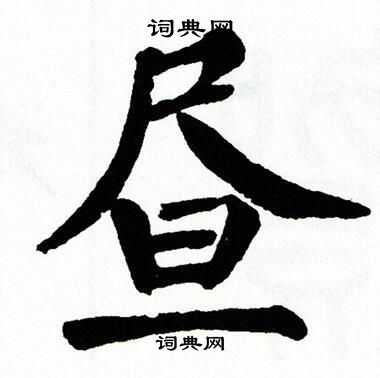 词典网
昼
词典网